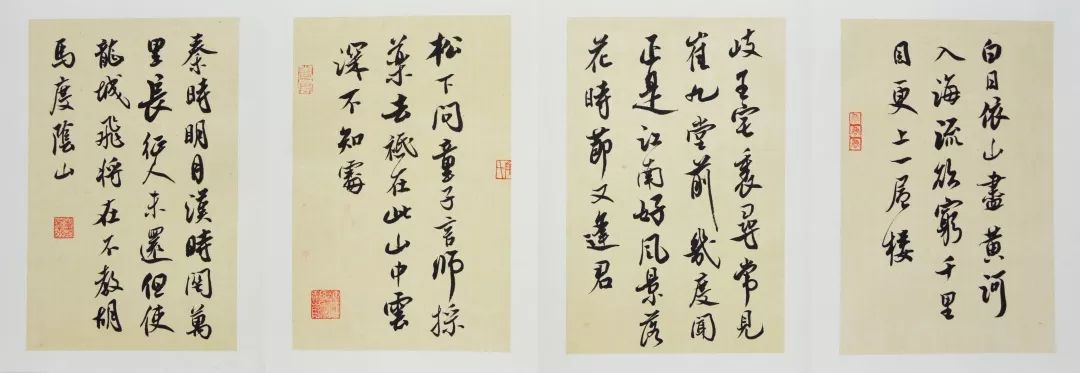 白日依山盡黃河
入海流欲窮千里
目更上一層樓
岐王宅裏尋常見
崔九堂前幾度聞
正是江南好風景落
花時節又逢君
松下問童子言師採
藥去祗在此山中雲
深不知處
秦時明月漢時関萬
里長征人未還但使
龍城飛將在不教胡
馬度陰山